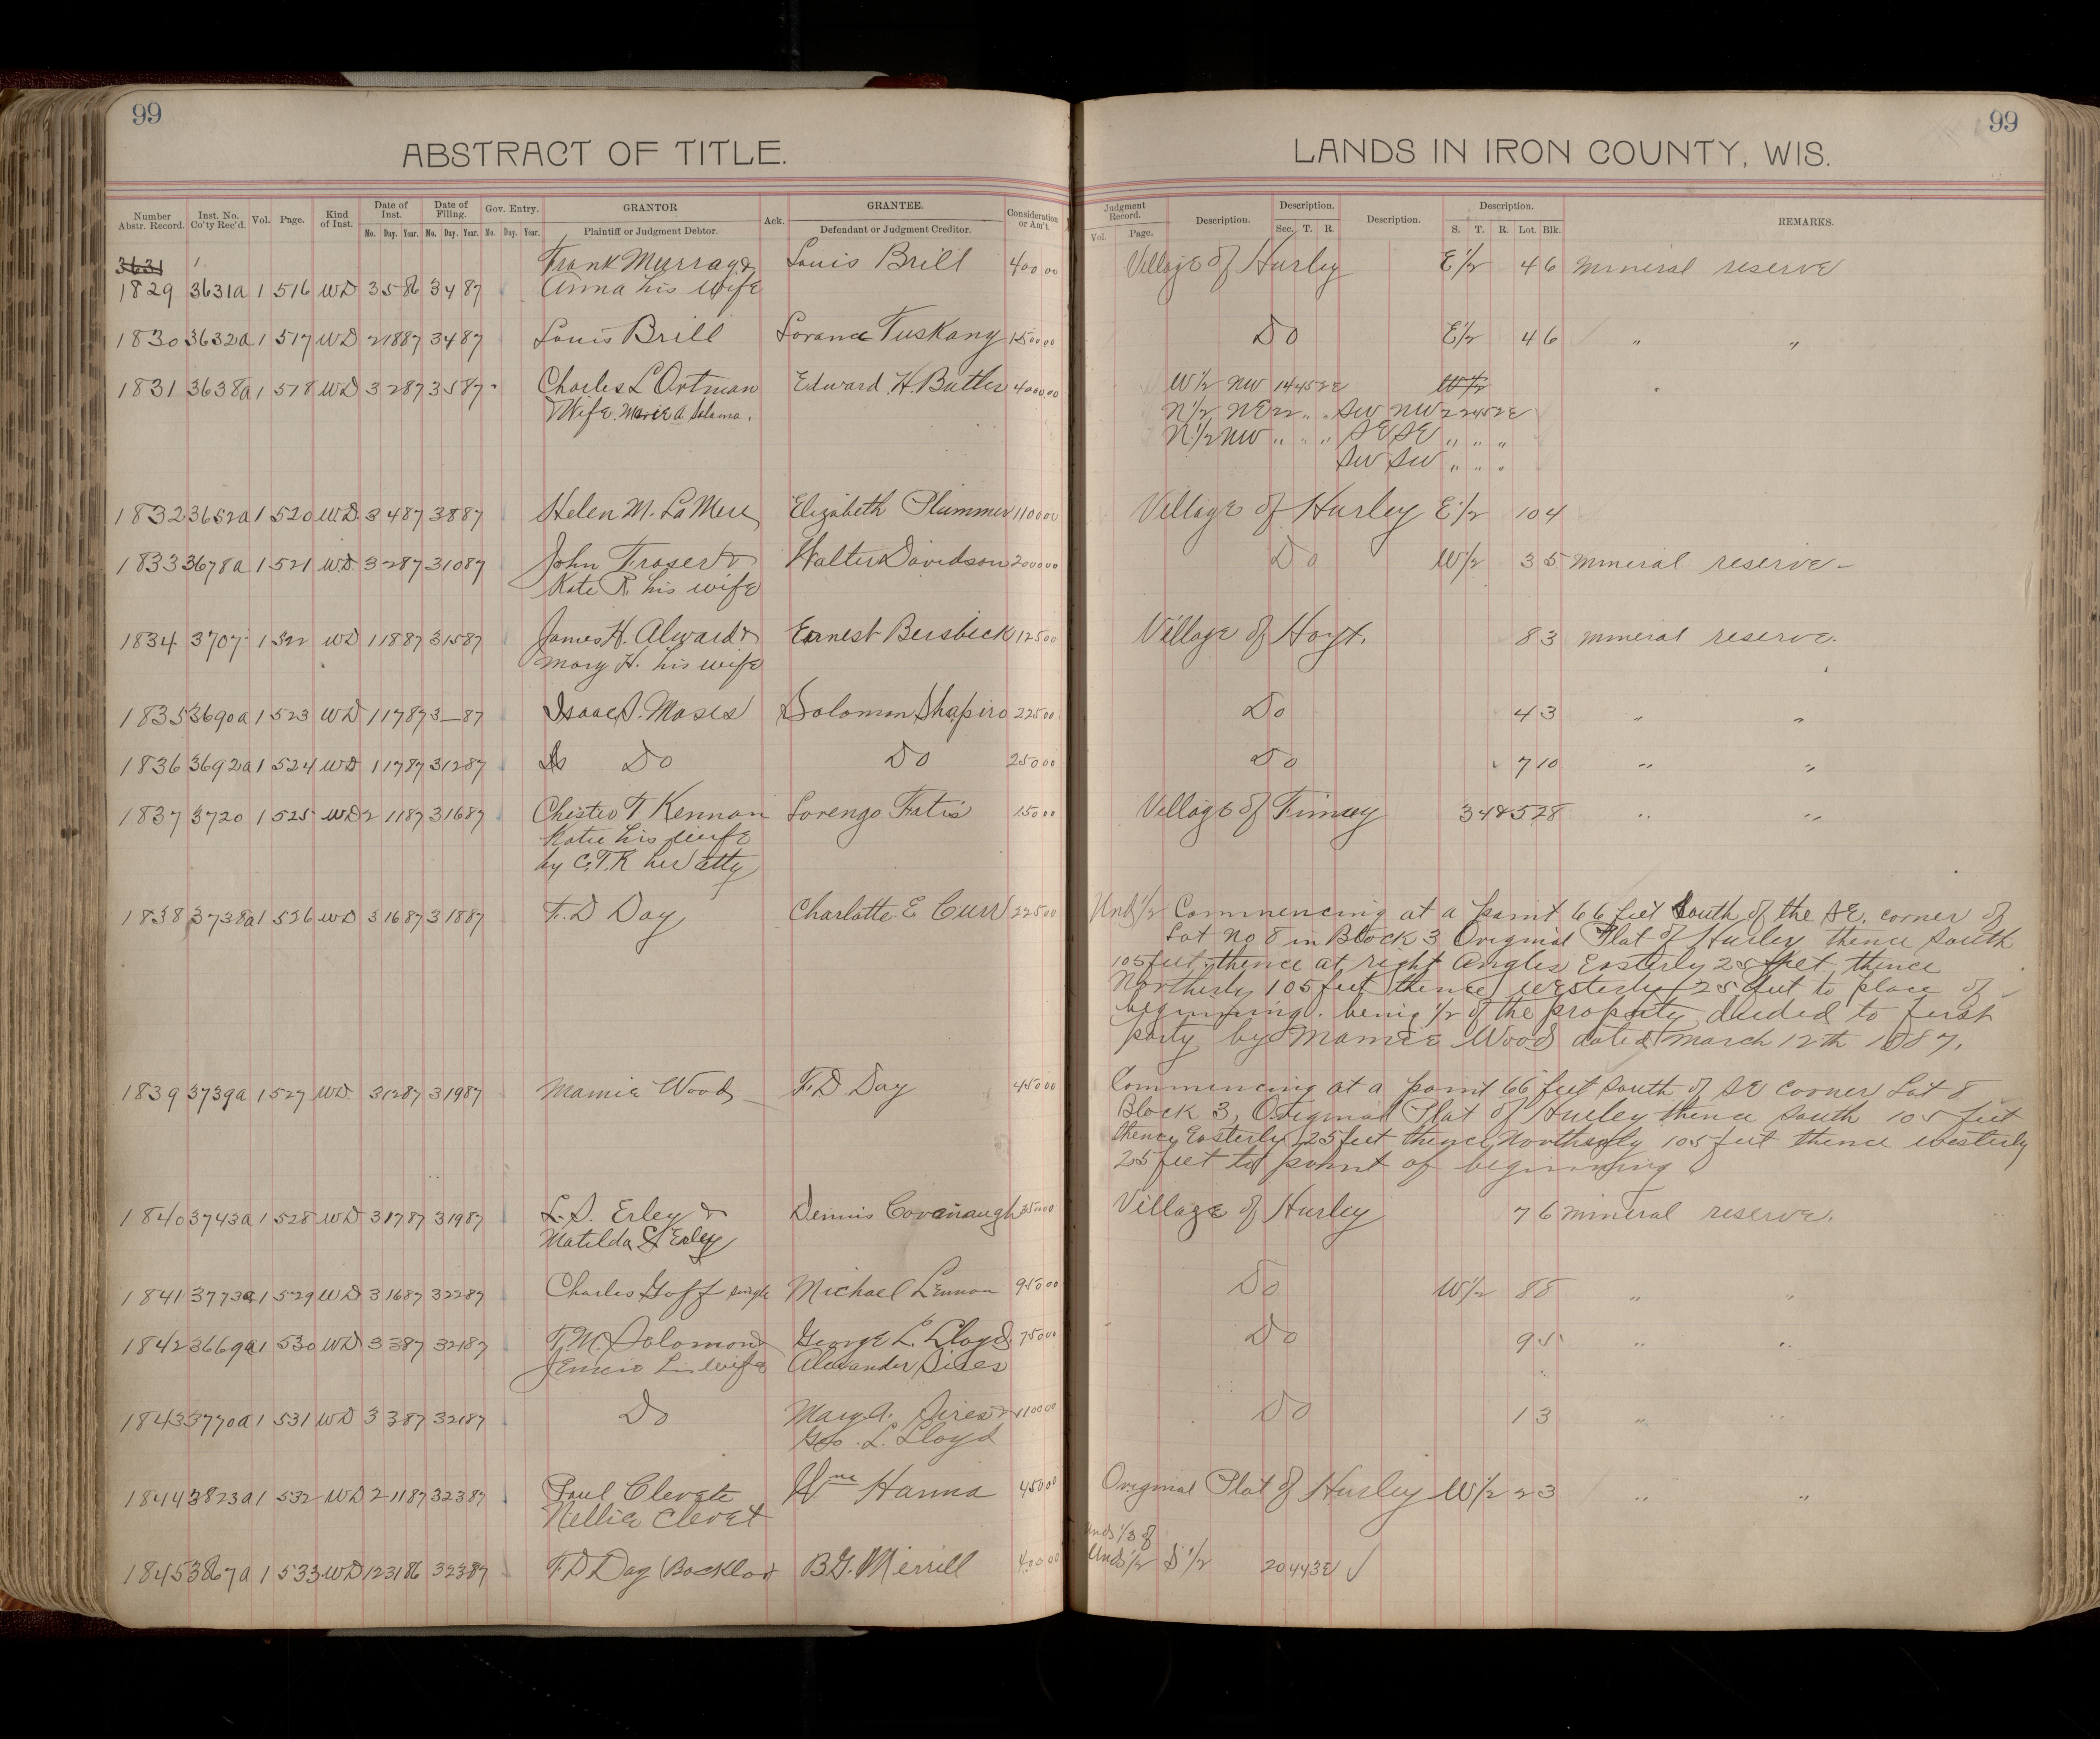 99
ABSTRACT OF TITLE.
Number Abstr. Record. Inst. No. Co'ty Rec'd. Vol. Page. Kind of Inst. Date of Inst. Date of Filing. Gov. Entry. GRANTOR Ack. GRANTEE. Consideration or Am't.
Mo. Day. Year. Mo. Day. Year. Mo. Day. Year. Plaintiff or Judgment Debtor. Defendant or Judgment Creditor.
3631 Frank Murray & Louis Brill 400 00
1829 3631a 1 516 WD 3 5 86 3 4 87 Anna his wife
1830 3632a 1 517 WD 2 18 87 3 4 87 Louis Brill Lorance Tuskany 1500 00
1831 3638a 1 518 WD 3 2 87 3 5 87 Charles L Ortman Edward H. Butler 4000.00
& Wife. Marie A Salama.
1832 3652a 1 520 WD. 3 4 87 3 8 87 Helen M. LaMere Elizabeth Plummer 1100 00
1833 3678a 1 521 WD. 3 2 87 3 10 87 John Fraser & Walter Davidson 2000 00
Kate R. his wife
1834 3707 1 522 WD 1 18 87 3 15 87 James H. Alward & Earnest Bersbeck 125 00
Mary H. his wife
1835 3690a 1 523 WD 1 17 87 3 — 87 Isaac S. Moses Solomon Shapiro 225 00
1836 3692a 1 524 WD 1 17 87 3 12 87 Do Do 250 00
1837 3720 1 525 WD 2 11 87 3 16 87 Chister T Kennan Lorengo Fatis 150 00
Katie his wife
by C.T.K her atty
1838 3738a 1 526 WD 3 16 87 3 18 87 F. D Day Charlotte E Curr 225 00
1839 3739a 1 527 WD 3 12 87 3 19 87 Mamie Wood F. D Day 450 00
1840 3743a 1 528 WD 3 17 87 3 19 87 L. S. Erley & Dennis Covanaugh 350 00
Matilda S Erley
1841 3773a 1 529 WD 3 16 87 3 22 87 Charles Goff single Michael Lennon 950 00
1842 3669a 1 530 WD 3 3 87 3 21 87 F. M. Solomon & George L. Lloyd & 750 00
Jennie his wife Alexander Sires
1843 3770a 1 531 WD 3 3 87 3 21 87 Do Mary A. Sires & 1100 00
Geo. L. Lloyd
1844 3823a 1 532 WD 2 11 87 3 23 87 Paul Clevete Wm Hanna 450 00
Nellie Clevet
1845 3867a 1 533 WD 12 31 86 3 23 87 F D Day (Bachlor B. G. Merrill 400 00
99
LANDS IN IRON COUNTY, WIS.
Judgment Record. Description. Description. Description. Description. REMARKS.
Vol. Page. Sec. T. R. S. T. R. Lot. Blk.
Village of Hurley E 1/2 4 6 Mineral reserve
Do E 1/2 4 6 " "
W 1/2 NW 14 45 2E W 1/2
N 1/2 NE 22 " " SW NW 22 45 2E
N 1/2 NW " " " SE SE " " "
SW SW " " "
Village of Hurley E 1/2 10 4
Do W 1/2 3 5 Mineral reserve -
Village of Hoyt. 8 3 Mineral reserve.
Do 4 3 " "
Do 7 10 " "
Village of Finney 3 4 & 5 28 " "
Und 1/2 Commencing at a point 66 feet South of the SE. corner of
Lot No 8 in Block 3 Original Plat of Hurley thence South
105 feet, thence at right Angles Easterly 25 feet, thence
Northerly 105 feet thence Westerly 25 feet to place of
beginning. being 1/2 of the property deeded to first
party by Mamie Wood dated March 12th 1887.
Commencing at a point 66 feet South of SE corner Lot 8
Block 3, Original Plat of Hurley thence South 105 feet
thence Easterly 25 feet thence Northerly 105 feet thence westerly
25 feet to point of beginning
Village of Hurley 7 6 Mineral reserve.
Do W 1/2 8 8 " "
Do 9 5 " "
Do 1 3 " "
Original Plat of Hurley W 1/2 2 3 " "
Und 1/3 of
Und 1/2 S 1/2 20 44 3E ✓